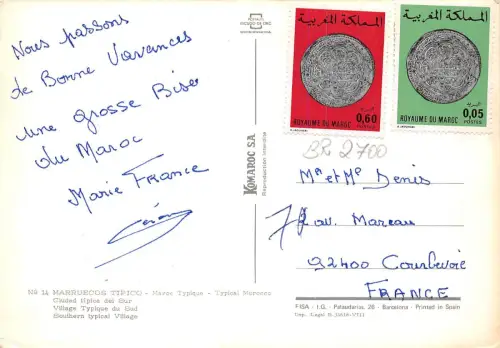 Nous passons
de Bonne Vacances
une grosse Bise
du Maroc
Marie France
Nº 14 MARRUECOS TIPICO - Maroc Typique - Typical Morocco
Ciudad tipica del Sur
Village Typique du Sud
Southern typical Village
KOMAROC S.A.
Reproduction interdite
المملكة المغربية
ROYAUME DU MAROC
البريد
0,60
POSTES
المملكة المغربية
ROYAUME DU MAROC
البريد
0,05
POSTES
BR 2700
Mr et Me Denis
7 av. Marceau
92400 Courbevoie
FRANCE
FISA - I.G. - Palaudarias, 26 - Barcelona - Printed in Spain